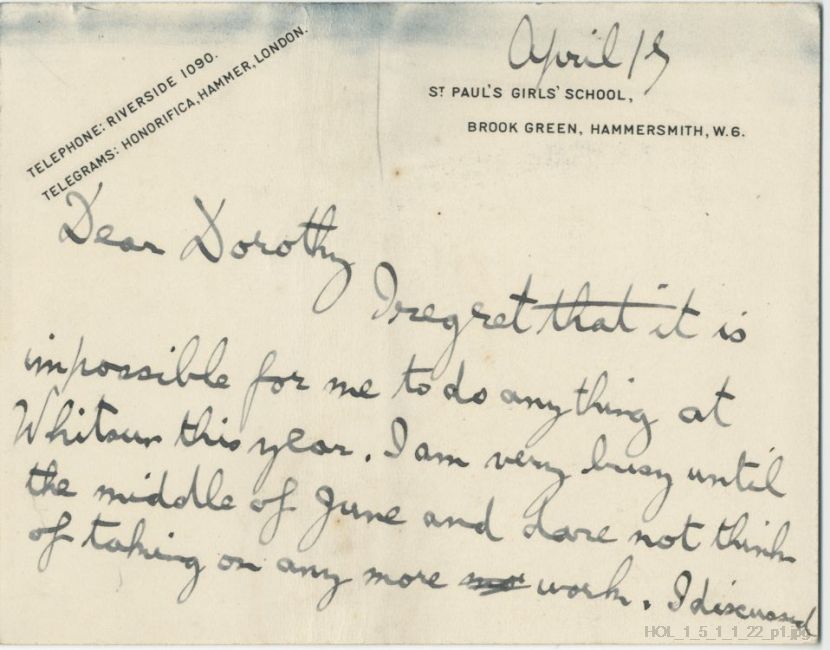 April 19
TELEPHONE: RIVERSIDE 1090.
TELEGRAMS: HONORIFICA, HAMMER, LONDON.
ST PAUL'S GIRLS' SCHOOL,
BROOK GREEN, HAMMERSMITH, W.6.
Dear Dorothy
I regret that it is
impossible for me to do anything at
Whitsun this year. I am very busy until
the middle of June and dare not think
of taking on any more work. I discussed
HOL_1_5_1_1_22_p1.jpg